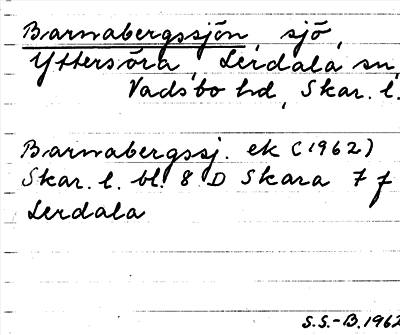 Barnabergssjön, sjö,
Yttersöra, Lerdala sn,
Vadsbo hd, Skar. l.
Barnabergssj. ek (1962)
Skar. l. bl. 8 D Skara 7 f
Lerdala
S.S.-B. 1962